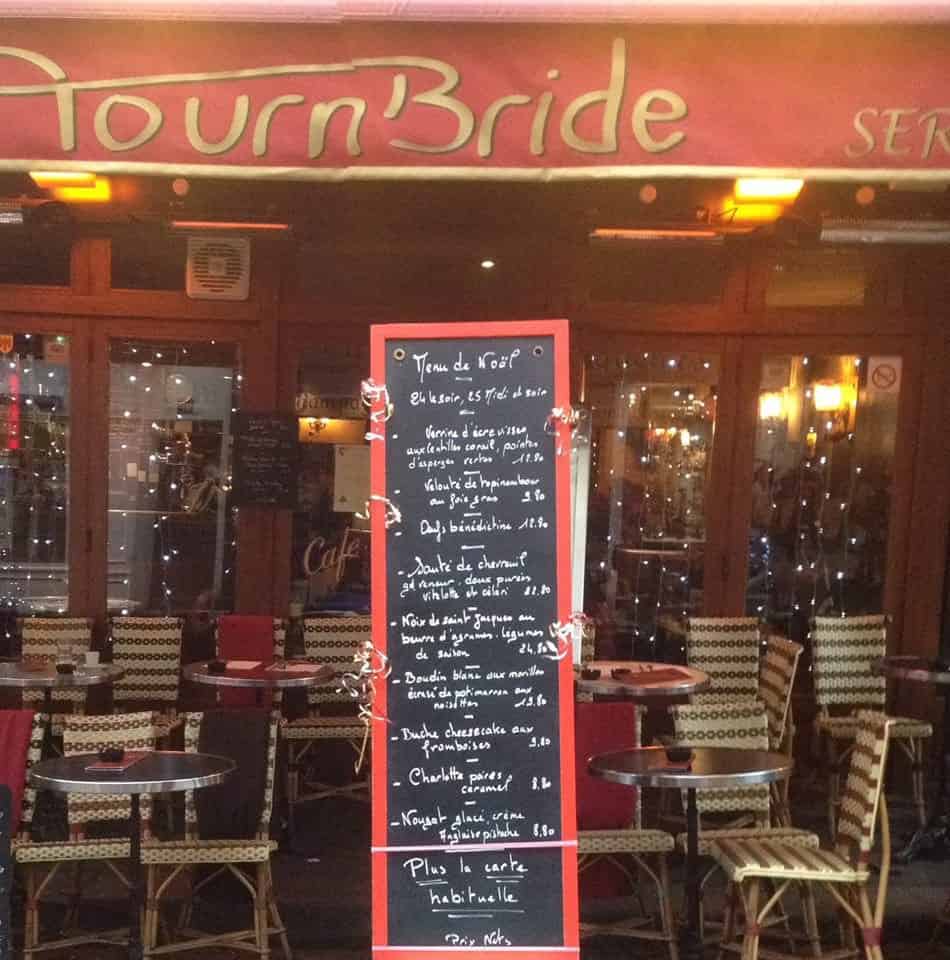 Tourn'Bride
SER
Menu de Noël
24 le soir, 25 Midi et soir
- Verrine d'écrevisses
aux lentilles corail, pointes
d'asperges vertes 12.80
- Velouté de topinambour
au foie gras 9.80
- Oeufs bénédictine 12.80
- Sauté de chevreuil
gd veneur. deux purées
vitelotte et céleri
- Noix de saint Jacques au
beurre d'agrumes. légumes
de saison 24.80
- Boudin blanc aux morilles
écrasé de potimarron aux
noisettes 19.80
- Buche cheesecake aux
framboises 9.80
- Charlotte poires
caramel 8.80
- Nougat glacé, crème
Anglaise pistache 8.80
Plus la carte
habituelle
Prix Nets
Café